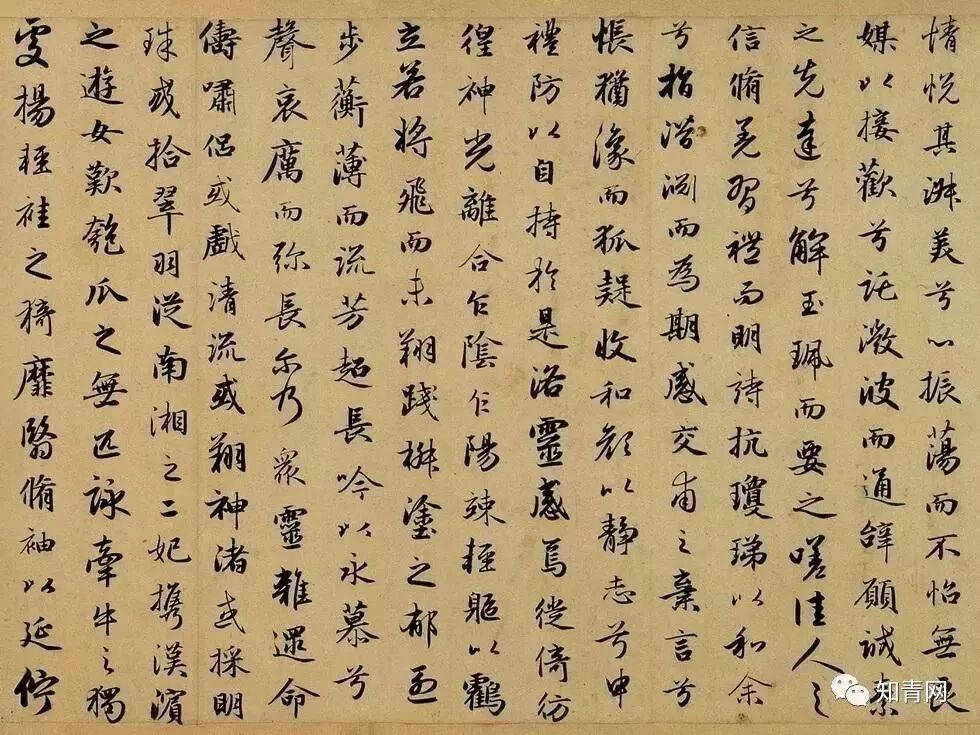 情悦其淑美兮心振蕩而不怡無良
媒以接歡兮託微波而通辭願誠素
之先達兮解玉珮而要之嗟佳人之
信脩羌習禮而明詩抗瓊珶以和余
兮指潛淵而為期感交甫之棄言兮
悵猶豫而狐疑收和顏以靜志兮申
禮防以自持於是洛靈感焉徙倚彷
徨神光離合乍陰乍陽竦輕軀以鶴
立若將飛而未翔踐椒塗之郁烈
步蘅薄而流芳超長吟以永慕兮
聲哀厲而弥長尔乃眾靈雜遝命
儔嘯侶或戲清流或翔神渚或採明
珠或拾翠羽從南湘之二妃攜漢濱
之遊女歎匏瓜之無匹詠牽牛之獨
處揚輕袿之猗靡翳脩袖以延佇
知青网